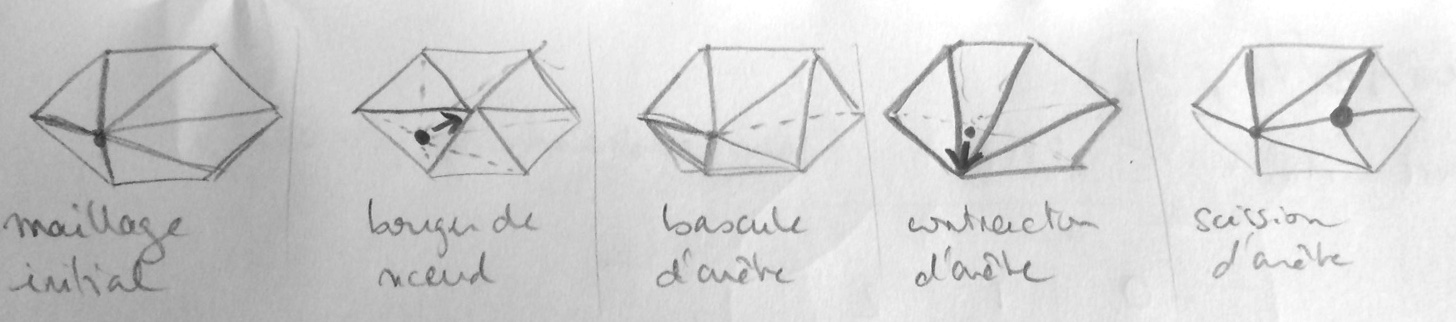 maillage
initial
bouger de
nœud
bascule
d'arête
contraction
d'arête
scission
d'arête